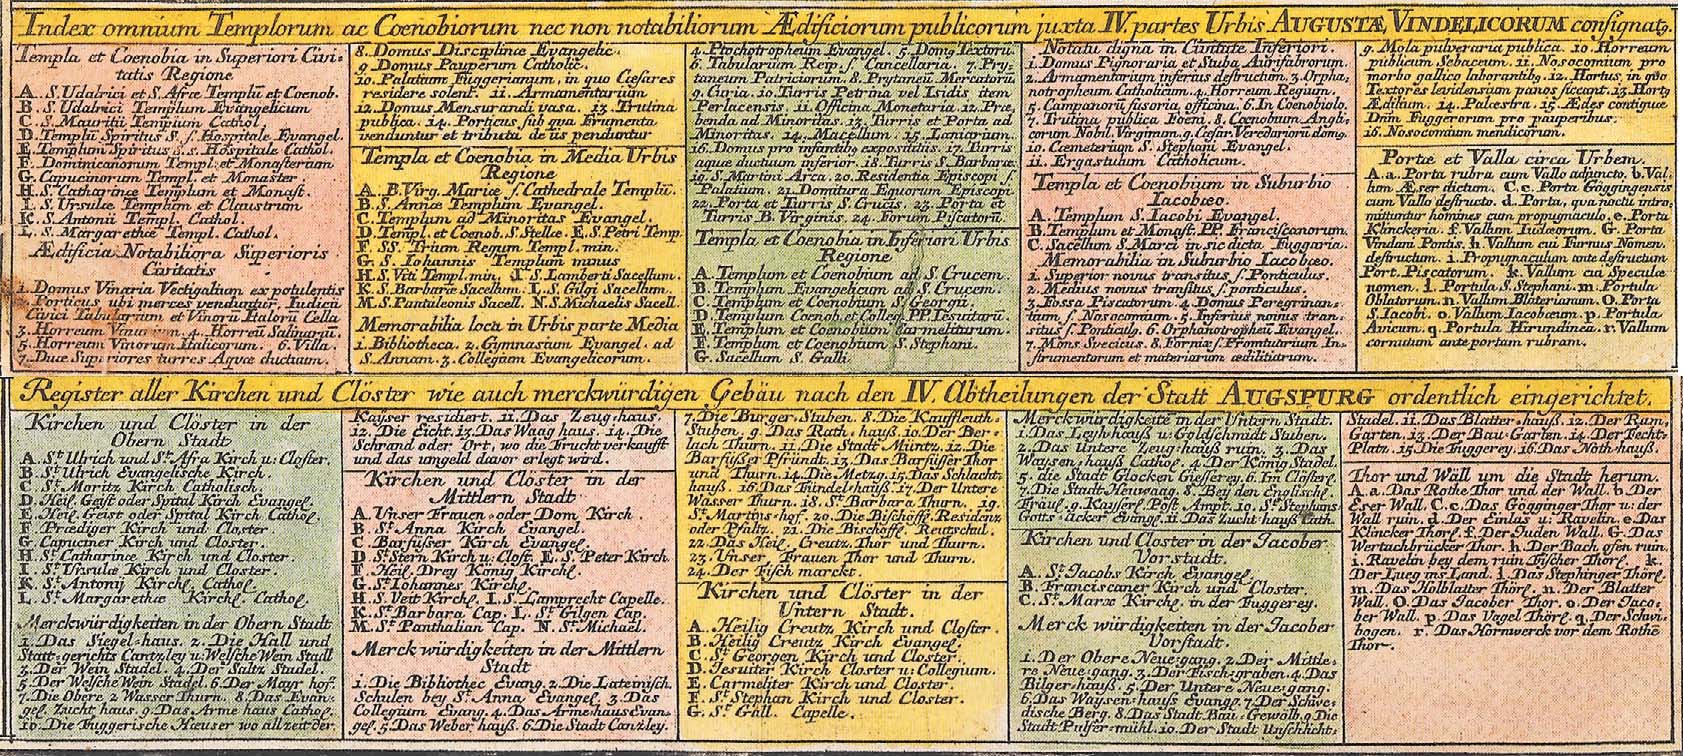 Index omnium Templorum ac Coenobiorum nec non notabiliorum Ædificiorum publicorum juxta IV. partes Urbis AUGUSTÆ VINDELICORUM consignatq.
Templa et Coenobia in Superiori Civi-
tatis Regione
A. S. Udalrici et S. Afræ Templū et Coenob.
B. S. Udalrici Templum Evangelicum
C. S. Mauritii Templum Cathol.
D. Templū Spiritus S. s. Hospitale Evangel.
E. Templum Spiritus S. s. Hospitale Cathol.
F. Dominicanorum Templ. et Monasterium
G. Capucinorum Templ. et Monaster.
H. S. Catharinæ Templum et Monast.
I. S. Ursulæ Templum et Claustrum
K. S. Antonii Templ. Cathol.
L. S. Margarethæ Templ. Cathol.
Ædificia Notabiliora Superioris
Civitatis
1. Domus Vinaria Vectigalium ex potulentis
Porticus ubi merces venduntur. Iudicii
Civici Tabularium et Vinorū Italorū Cella
3. Horreum Vinarium. 4. Horreū Salinarū.
5. Horreum Vinorum Italicorum. 6. Villa.
7. Duæ Superiores turres Aquæ ductuum.
8. Domus Disciplinæ Evangelic.
9. Domus Pauperum Catholic.
10. Palatium Fuggerianum, in quo Cæsares
residere solent. 11. Armamentarium
12. Domus Mensurandi vasa. 13. Trutina
publica. 14. Porticus sub qua Frumenta
venduntur et tributa de iis penduntur
Templa et Coenobia in Media Urbis
Regione
A. B. Virg. Mariæ s. Cathedrale Templū.
B. S. Annæ Templum Evangel.
C. Templum ad Minoritas Evangel.
D. Templ. et Coenob. S. Stellæ. E. S. Petri Temp.
F. SS. Trium Regum Templ. min.
G. S. Iohannis Templum minus
H. S. Viti Templ. min. I. S. Lamberti Sacellum.
K. S. Barbaræ Sacellum. L. S. Gilgi Sacellum.
M. S. Pantaleonis Sacell. N. S. Michaelis Sacell.
Memorabilia loca in Urbis parte Media
1. Bibliotheca. 2. Gymnasium Evangel. ad
S. Annam. 3. Collegium Evangelicorum.
4. Ptochotropheum Evangel. 5. Domq Textorū.
6. Tabularium Reip. s. Cancellaria. 7. Pry-
taneum Patriciorum. 8. Prytaneū Mercatorū
9. Curia. 10. Turris Petrina vel Isidis item
Perlacensis. 11. Officina Monetaria. 12. Præ-
benda ad Minoritas. 13. Turris et Porta ad
Minoritas. 14. Macellum. 15. Laniarium.
16. Domus pro infantibq expositiis. 17. Turris
aquæ ductuum inferior. 18. Turris S. Barbaræ.
19. S. Martini Arca. 20. Residentia Episcopi s.
Palatium. 21. Domitura Equorum Episcopi
22. Porta et Turris S. Crucis. 23. Porta et
Turris B. Virginis. 24. Forum Piscatorū.
Templa et Coenobia in Inferiori Urbis
Regione
A. Templum et Coenobium ad S. Crucem.
B. Templum Evangelicum ad S. Crucem.
C. Templum et Coenobium S. Georgii.
D. Templum Coenob. et Colleg. PP. Iesuitarū.
E. Templum et Coenobium Carmelitarum.
F. Templum et Coenobium S. Stephani.
G. Sacellum S. Galli
Notatu digna in Civitate Inferiori.
1. Domus Pignoraria et Stuba Aurifabrorum.
2. Armamentarium inferius destructum. 3. Orpha-
notropheum Catholicum. 4. Horreum Regium.
5. Campanarū fusoria officina. 6. In Coenobiolo.
7. Trutina publica Foeni. 8. Coenobium Angli-
corum Nobil. Virginum. 9. Cæsar. Veredariorū domq.
10. Coemeterium S. Stephani Evangel.
11. Ergastulum Catholicum.
Templa et Coenobium in Suburbio
Iacobæo.
A. Templum S. Iacobi Evangel.
B. Templum et Monast. PP. Franciscanorum.
C. Sacellum S. Marci in sic dicta Fuggaria.
Memorabilia in Suburbio Iacobæo.
1. Superior novus transitus s. Ponticulus.
2. Medius novus transitus s. ponticulus.
3. Fossa Piscatorum. 4. Domus Peregrinan-
tium s. Nosocomium. 5. Inferius novus tran-
situs s. Ponticulq. 6. Orphanotropheū Evangel.
7. Mons Svecicus. 8. Fornix s. Promtuarium In-
strumentorum et materiarum ædilitiarum.
9. Mola pulveraria publica. 10. Horreum
publicum Sebaceum. 11. Nosocomium pro
morbo gallico laborantibq. 12. Hortus, in quo
Textores levidensium panos siccant. 13. Hortq
Ædilium. 14. Palæstra. 15. Ædes contiguæ
Dnm Fuggerorum pro pauperibus.
16. Nosocomium mendicorum.
Portæ et Valla circa Urbem.
A. a. Porta rubra cum Vallo adjuncto. b. Val-
lum Æser dictum. C. c. Porta Göggingensis
cum Vallo destructo. d. Porta, qua noctu intro-
mittuntur homines cum propugnaculo. e. Porta
Klinckeria. f. Vallum Iudæorum. G. Porta
Vindani Pontis. h. Vallum cui Furnus Nomen.
destructum. i. Propugnaculum ante destructum
Port. Piscatorum. k. Vallum cui Speculæ
nomen. l. Portula S. Stephani. m. Portula
Oblatorum. n. Vallum Blaterianum. O. Porta
S. Iacobi. o. Vallum Iacobæum. p. Portula
Avicum. q. Portula Hirundinea. r. Vallum
cornutum ante portam rubram.
Register aller Kirchen und Clöster wie auch merckwürdigen Gebäu nach den IV. Abtheilungen der Statt AUGSPURG ordentlich eingerichtet.
Kirchen und Clöster in der
Obern Stadt
A. St. Ulrich und St. Afra Kirch u: Closter.
B. St. Ulrich Evangelische Kirch.
C. St. Moritz Kirch Catholisch
D. Heil. Geist oder Spital Kirch Evangel.
E. Heil. Geist oder Spital Kirch Cathol.
F. Prædiger Kirch und Closter
G. Capuciner Kirch und Closter.
H. St. Catharinæ Kirch und Closter.
I. St. Ursulæ Kirch und Closter.
K. St. Antonij Kirchl. Cathol.
L. St. Margarethæ Kirchl. Cathol.
Merckwürdigkeiten in der Obern Stadt
1. Das Siegel-haus. 2. Die Hall und
Statt-gerichts Cantzley u: Welsche Wein Stadl
3. Der Wein Stadel. 4. Der Saltz Stadel.
5. Der Welsche Wein Stadel. 6. Der Mayr hof.
7. Die Obere 2 Wasser Thurn. 8. Das Evan-
gel. Zucht haus. 9. Das Arme haus Cathol.
10. Die Fuggerische Hæuser wo allzeit der
Kayser residiert. 11. Das Zeug-haus.
12. Die Eicht. 13. Das Waag haus. 14. Die
Schrand oder Ort, wo die Frucht verkaufft
und das umgeld davor erlegt wird.
Kirchen und Clöster in der
Mittlern Stadt
A. Unser Frauen oder Dom Kirch
B. St. Anna Kirch Evangel.
C. Barfüsser Kirch Evangel.
D. St. Stern Kirch u: Clost. E. S. Peter Kirch
F. Heil. Drey König Kirchl.
G. St. Iohannes Kirchl.
H. S. Veit Kirchl. I. S. Lamprecht Capelle.
K. St. Barbara Cap. L. St. Gilgen Cap.
M. St. Panthalian Cap. N. St. Michael.
Merck würdigkeiten in der Mittlern
Stadt
1. Die Bibliothec Evang. 2. Die Lateinisch
Schulen bey St. Anna Evangel. 3. Das
Collegium Evang. 4. Das Arme haus Evan-
gel. 5. Das Weber hauß. 6. Die Stadt Canzley.
7. Die Burger Stuben. 8. Die Kauffleuth
Stuben. 9. Das Rath-hauß. 10. Der Ber-
lach Thurn. 11. Die Stadt Müntz. 12. Die
Barfüßer Pfründt. 13. Das Barfüsser Thor
und Thurn. 14. Die Metzg. 15. Das Schlacht-
hauß. 16. Das Fündel-hauß. 17. Der Untere
Wasser Thurn. 18. St. Barbara Thurn. 19.
St. Martins-hof. 20. Die Bischöffl. Residenz
oder Pfaltz. 21. Die Bischöffl. Reutschul.
22. Das Heil. Creutz Thor und Thurn.
23. Unser Frauen Thor und Thurn.
24. Der Fisch marckt.
Kirchen und Clöster in der
Untern Stadt.
A. Heilig Creutz Kirch und Closter.
B. Heilig Creutz Kirch Evangel.
C. St. Georgen Kirch und Closter.
D. Jesuiter Kirch Closter u: Collegium.
E. Carmeliter Kirch und Closter.
F. St. Stephan Kirch und Closter.
G. St. Gall. Capelle.
Merckwürdigkeite in der Untern Stadt.
1. Das Leyhhauß u: Goldschmidt Stuben.
2. Das Untere Zeug-hauß ruin. 3. Das
Waysen-hauß Cathol. 4. Der König Stadel.
5. die Stadt Glocken Giesserey. 6. Im Clösterl.
7. Die Stadt Heuwaag. 8. Bey den Englische
Fräul. 9. Kayserl. Post Ampt. 10. St. Stephans
Gotts-äcker Evangl. 11. Das Zucht-hauß Cath.
Kirchen und Closter in der Jacober
Vorstadt.
A. St. Jacobs Kirch Evangel.
B. Franciscaner Kirch und Closter.
C. St. Marx Kirchl. in der Fuggerey.
Merck würdigkeiten in der Jacober
Vorstadt.
1. Der Obere Neue-gang. 2. Der Mittle-
re Neue-gang. 3. Der Fisch-graben. 4. Das
Bilger-hauß. 5. Der Untere Neue-gang.
6. Das Waysen-hauß Evangl. 7. Der Schwe-
dische Berg. 8. Das Stadt Bau-Gewölb. 9. Die
Stadt Pulfer-mühl. 10. Der Stadt Unschlicht-
Stadel. 11. Das Blatter-hauß. 12. Der Ram-
Garten. 13. Der Bau-Garten. 14. Der Fecht-
Platz. 15. Die Fuggerey. 16. Das Nöth-hauß.
Thor und Wäll um die Stadt herum.
A. a. Das Rothe Thor und der Wall. b. Der
Eser Wall. C. c. Das Gögginger Thor u: der
Wall ruin. d. Der Einlas u: Ravelin. e. Das
Klincker Thörl. f. Der Juden Wall. G. Das
Wertachbrucker Thor. h. Der Bach ofen ruin.
i. Ravelin bey dem ruin. Fischer Thörl. k.
Der Lueg ins Land. l. Das Stephinger Thörl.
m. Das Holblatter Thörl. n. Der Blatter
Wall. O. Das Jacober Thor. o. Der Jaco-
ber Wall. p. Das Vogel Thörl. q. Der Schwi-
bogen. r. Das Hornwerck vor dem Rothe
Thor.